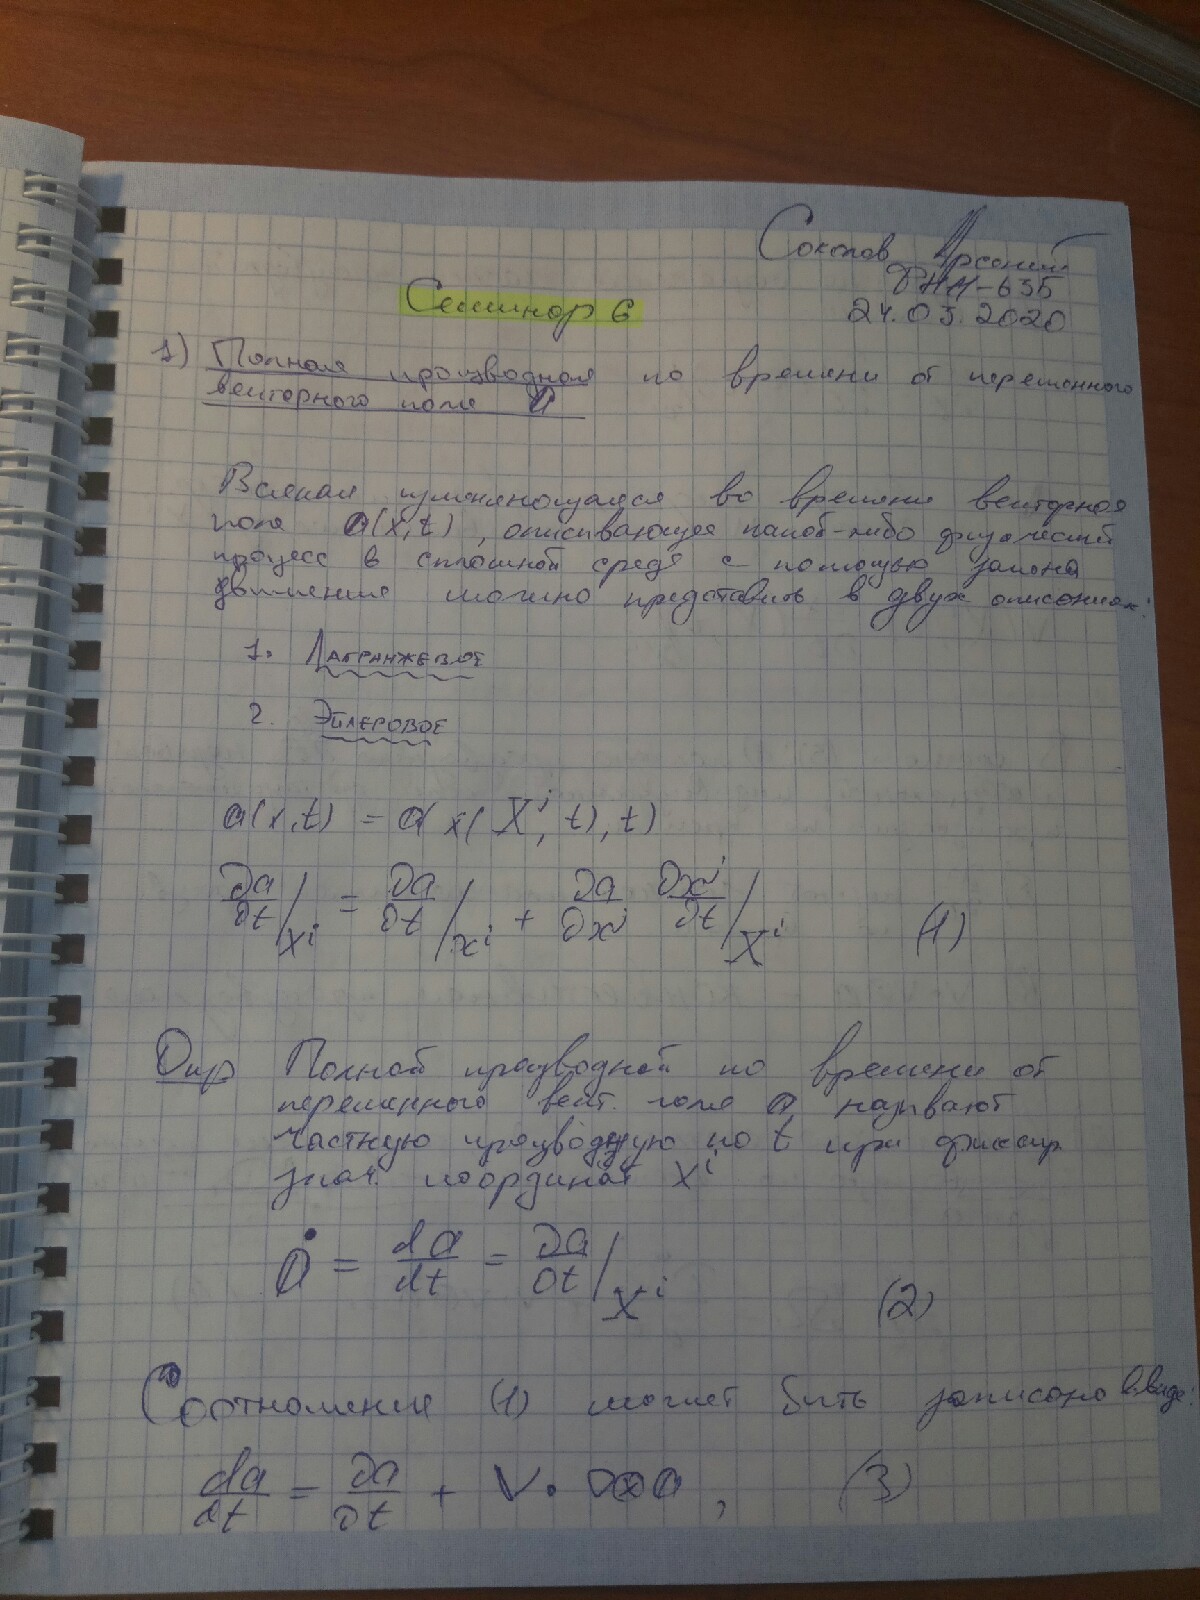 Соколов Арсений
ФН11-63Б
24.03.2020
Семинар 6
1) Полная производная по времени от переменного
векторного поля a
Всякая изменяющаяся во времени векторная
поля a(x,t), описывающее какой-либо физический
процесс в сплошной среде с помощью закона
движения можно представить в двух описаниях:
1. Лагранжевое
2. Эйлеровое
a(x,t) = a x(Xⁱ, t), t)
∂a/∂t /Xⁱ = ∂a/∂t /xⁱ + ∂a/∂xʲ ∂xʲ/∂t /Xⁱ (1)
Опр Полной производной по времени от
переменного вект. поля a называют
частную производную по t при фиксир
знач. координат Xⁱ
ȧ = da/dt = ∂a/∂t /Xⁱ (2)
Соотношение (1) может быть записано в виде:
da/dt = ∂a/∂t + V · ∇⊗a, (3)